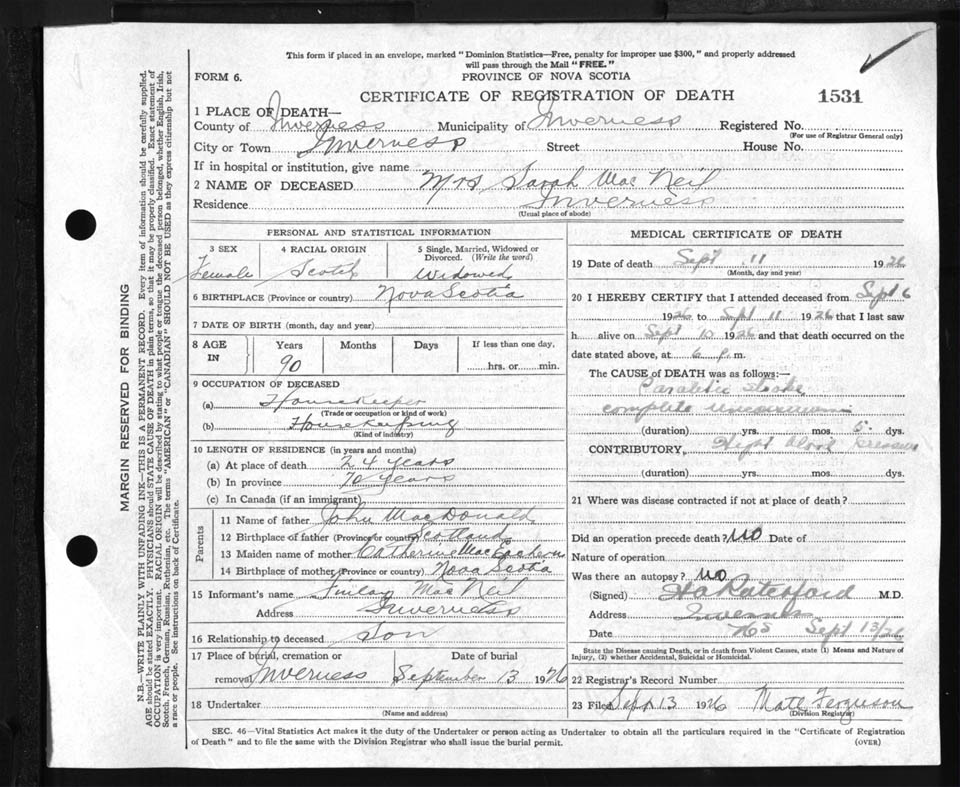 This form if placed in an envelope, marked "Dominion Statistics—Free, penalty for improper use $300," and properly addressed
will pass through the Mail "FREE."
FORM 6. PROVINCE OF NOVA SCOTIA
CERTIFICATE OF REGISTRATION OF DEATH 1531
1 PLACE OF DEATH—
County of Inverness Municipality of Inverness Registered No.
(For use of Registrar General only)
City or Town Inverness Street House No.
If in hospital or institution, give name
2 NAME OF DECEASED Mrs Sarah Mac Neil
Residence Inverness
(Usual place of abode)
PERSONAL AND STATISTICAL INFORMATION
3 SEX 4 RACIAL ORIGIN 5 Single, Married, Widowed or
Divorced. (Write the word)
Female Scotch Widowed
6 BIRTHPLACE (Province or country) Nova Scotia
7 DATE OF BIRTH (month, day and year)
8 AGE IN Years Months Days If less than one day,
90 hrs. or min.
9 OCCUPATION OF DECEASED
(a) Housekeeper
(Trade or occupation or kind of work)
(b) Housekeeping
(Kind of industry)
10 LENGTH OF RESIDENCE (in years and months)
(a) At place of death 24 years
(b) In province 70 years
(c) In Canada (if an immigrant)
Parents
11 Name of father John MacDonald
12 Birthplace of father (Province or country) Scotland
13 Maiden name of mother Catherine MacEachern
14 Birthplace of mother (Province or country) Nova Scotia
15 Informant's name Finlay Mac Neil
Address Inverness
16 Relationship to deceased Son
17 Place of burial, cremation or Date of burial
removal Inverness September 13 1926
18 Undertaker
(Name and address)
MEDICAL CERTIFICATE OF DEATH
19 Date of death Sept 11 1926
(Month, day and year)
20 I HEREBY CERTIFY that I attended deceased from Sept 6
1926 to Sept 11 1926 that I last saw
h alive on Sept 10 1926 and that death occurred on the
date stated above, at 6 P. m.
The CAUSE OF DEATH was as follows:—
Paraletic Stroke
complete
(duration) yrs. mos. 5 dys.
CONTRIBUTORY High blood pressure
(duration) yrs. mos. dys.
21 Where was disease contracted if not at place of death?
Did an operation precede death? NO Date of
Nature of operation
Was there an autopsy? NO
(Signed) M.D.
Address Inverness
Date NS Sept 13/26
State the Disease causing Death, or in death from Violent Causes, state (1) Means and Nature of
Injury, (2) whether Accidental, Suicidal or Homicidal.
22 Registrar's Record Number
23 Filed Sept 13 1926 Matt Ferguson
(Division Registrar)
SEC. 46—Vital Statistics Act makes it the duty of the Undertaker or person acting as Undertaker to obtain all the particulars required in the "Certificate of Registration
of Death" and to file the same with the Division Registrar who shall issue the burial permit. (OVER)
MARGIN RESERVED FOR BINDING
N.B.—WRITE PLAINLY WITH UNFADING INK—THIS IS A PERMANENT RECORD. Every item of information should be carefully supplied.
AGE should be stated EXACTLY. PHYSICIANS should STATE CAUSE OF DEATH in plain terms, so that it may be properly classified. Exact statement of
OCCUPATION is very important. RACIAL ORIGIN will be described by stating to what people or tongue the deceased person belonged, whether English, Irish,
Scotch, French, German, Russian, Ruthenian, etc. The terms "AMERICAN" or "CANADIAN" SHOULD NOT BE USED as they express citizenship but not
a race or people. See instructions on back of Certificate.